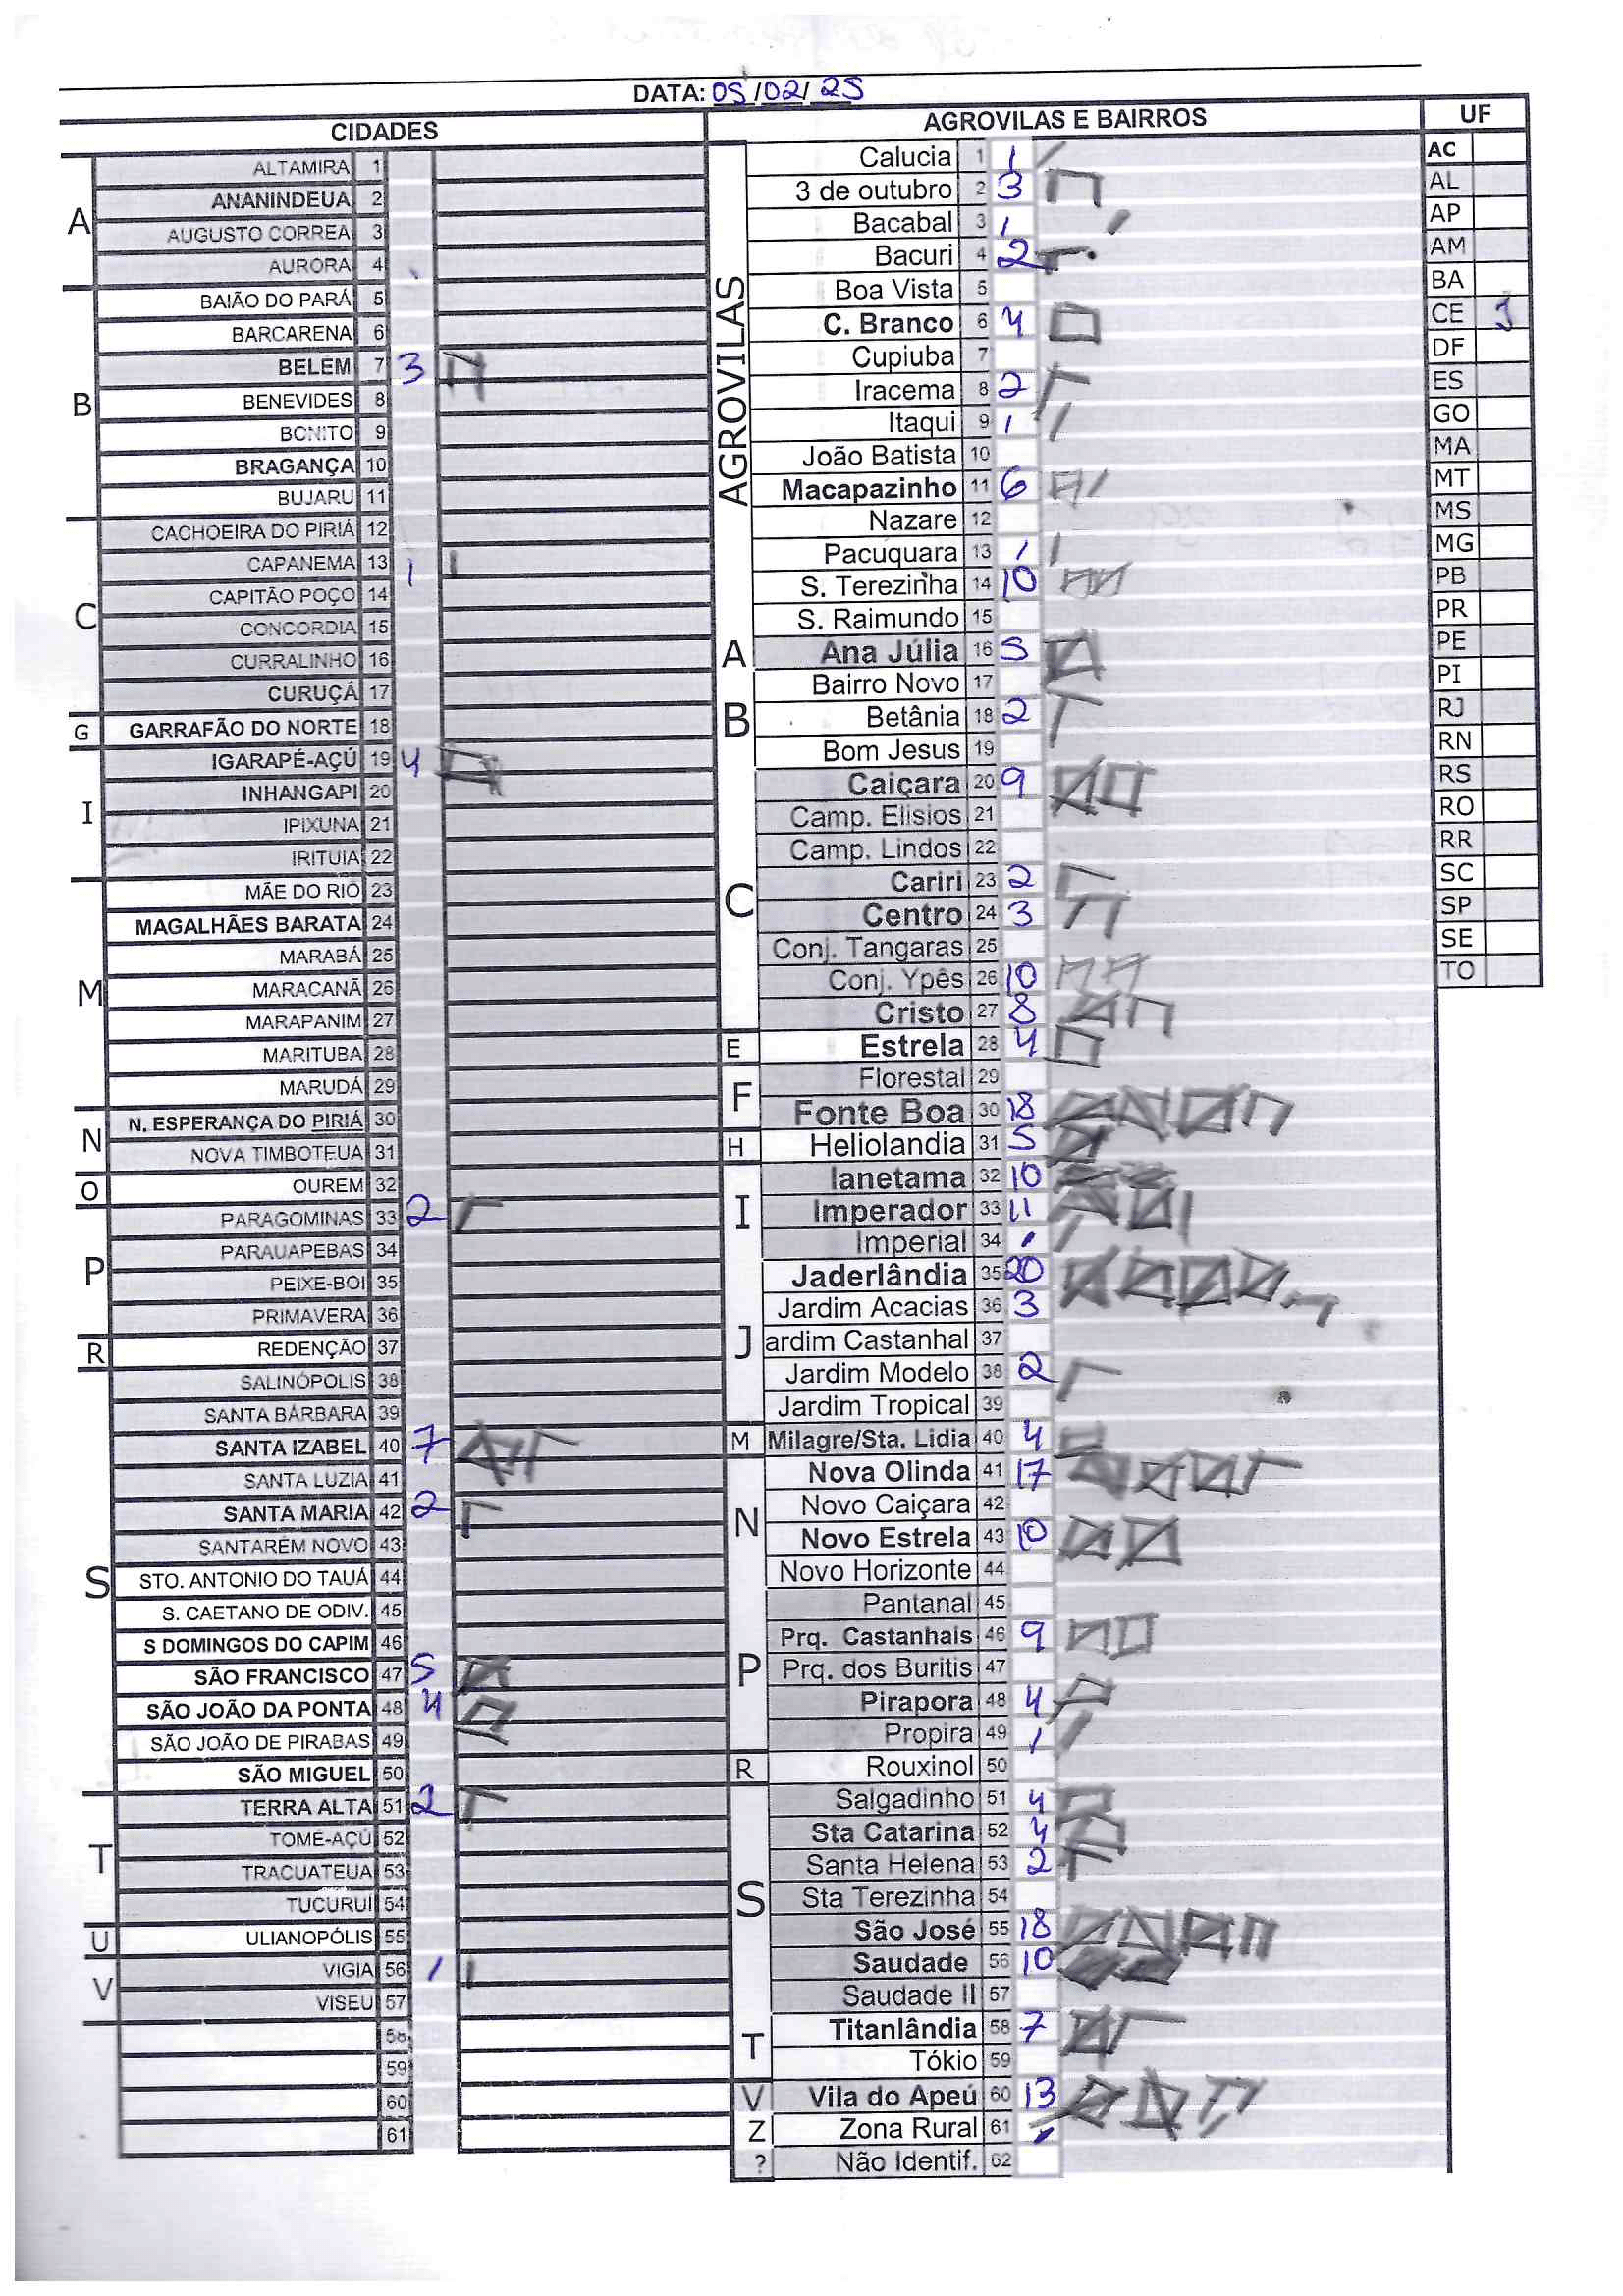 DATA: 05/02/25
CIDADES
A
ALTAMIRA 1
ANANINDEUA 2
AUGUSTO CORREA 3
AURORA 4
B
BAIÃO DO PARÁ 5
BARCARENA 6
BELÉM 7 3
BENEVIDES 8
BONITO 9
BRAGANÇA 10
BUJARU 11
C
CACHOEIRA DO PIRIÁ 12
CAPANEMA 13 1
CAPITÃO POÇO 14
CONCORDIA 15
CURRALINHO 16
CURUÇÁ 17
G
GARRAFÃO DO NORTE 18
I
IGARAPÉ-AÇÚ 19 4
INHANGAPI 20
IPIXUNA 21
IRITUIA 22
M
MÃE DO RIO 23
MAGALHÃES BARATA 24
MARABÁ 25
MARACANÃ 26
MARAPANIM 27
MARITUBA 28
MARUDÁ 29
N
N. ESPERANÇA DO PIRIÁ 30
NOVA TIMBOTEUA 31
O
OUREM 32
P
PARAGOMINAS 33 2
PARAUAPEBAS 34
PEIXE-BOI 35
PRIMAVERA 36
R
REDENÇÃO 37
S
SALINÓPOLIS 38
SANTA BÁRBARA 39
SANTA IZABEL 40 7
SANTA LUZIA 41
SANTA MARIA 42 2
SANTARÉM NOVO 43
STO. ANTONIO DO TAUÁ 44
S. CAETANO DE ODIV. 45
S DOMINGOS DO CAPIM 46
SÃO FRANCISCO 47 5
SÃO JOÃO DA PONTA 48 4
SÃO JOÃO DE PIRABAS 49
SÃO MIGUEL 50
T
TERRA ALTA 51 2
TOMÉ-AÇÚ 52
TRACUATEUA 53
TUCURUI 54
U
ULIANOPÓLIS 55
V
VIGIA 56 1
VISEU 57
58
59
60
61
AGROVILAS E BAIRROS
AGROVILAS
Calucia 1 1
3 de outubro 2 3
Bacabal 3 1
Bacuri 4 2
Boa Vista 5
C. Branco 6 4
Cupiuba 7
Iracema 8 2
Itaqui 9 1
João Batista 10
Macapazinho 11 6
Nazare 12
Pacuquara 13 1
S. Terezinha 14 10
S. Raimundo 15
A
Ana Júlia 16 5
B
Bairro Novo 17
Betânia 18 2
Bom Jesus 19
C
Caiçara 20 9
Camp. Elisios 21
Camp. Lindos 22
Cariri 23 2
Centro 24 3
Conj. Tangaras 25
Conj. Ypês 26 10
Cristo 27 8
E
Estrela 28 4
F
Florestal 29
Fonte Boa 30 18
H
Heliolandia 31 5
I
Ianetama 32 10
Imperador 33 11
Imperial 34 1
J
Jaderlândia 35 20
Jardim Acacias 36 3
ardim Castanhal 37
Jardim Modelo 38 2
Jardim Tropical 39
M
Milagre/Sta. Lidia 40 4
N
Nova Olinda 41 17
Novo Caiçara 42
Novo Estrela 43 10
Novo Horizonte 44
P
Pantanal 45
Prq. Castanhais 46 9
Prq. dos Buritis 47
Pirapora 48 4
Propira 49 1
R
Rouxinol 50
S
Salgadinho 51 4
Sta Catarina 52 4
Santa Helena 53 2
Sta Terezinha 54
São José 55 18
Saudade 56 10
Saudade II 57
T
Titanlândia 58 7
Tókio 59
V
Vila do Apeú 60 13
Z
Zona Rural 61 1
?
Não Identif. 62
UF
AC
AL
AP
AM
BA
CE 1
DF
ES
GO
MA
MT
MS
MG
PB
PR
PE
PI
RJ
RN
RS
RO
RR
SC
SP
SE
TO